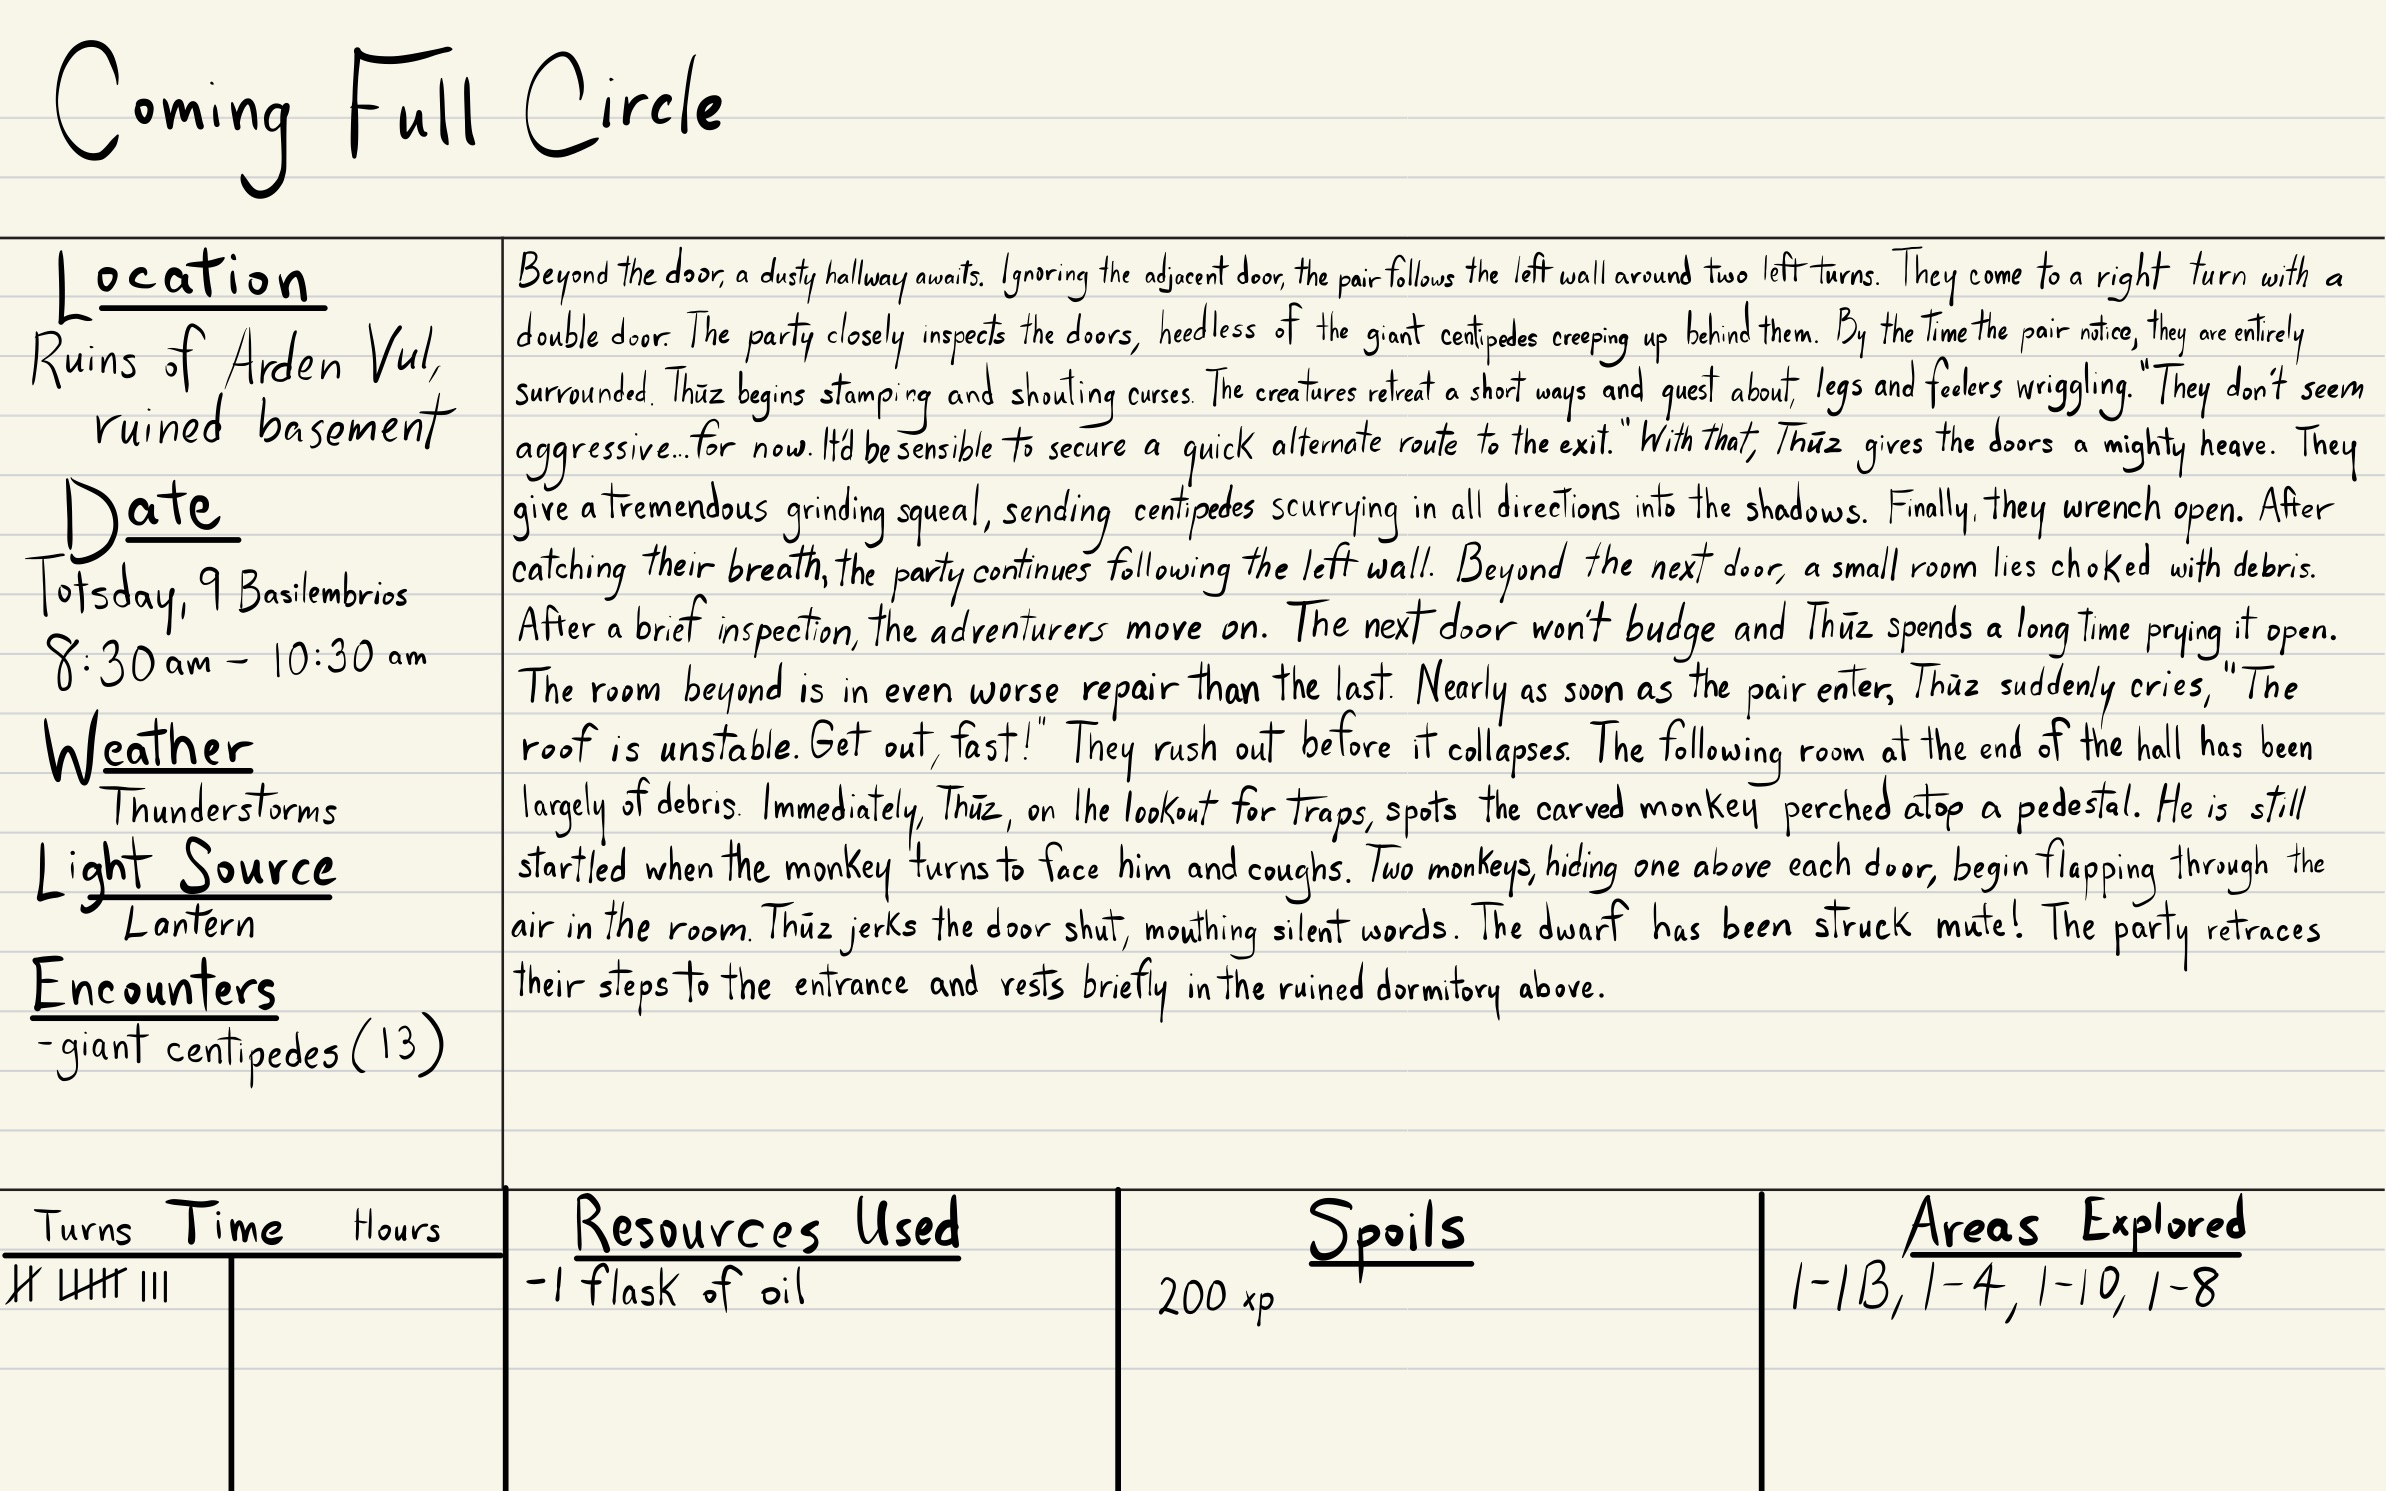 Coming Full Circle
Location
Ruins of Arden Vul,
ruined basement
Date
Totsday, 9 Basilembrios
8:30 am - 10:30 am
Weather
Thunderstorms
Light Source
Lantern
Encounters
-giant centipedes (13)
Beyond the door, a dusty hallway awaits. Ignoring the adjacent door, the pair follows the left wall around two left turns. They come to a right turn with a
double door. The party closely inspects the doors, heedless of the giant centipedes creeping up behind them. By the time the pair notice, they are entirely
surrounded. Thūz begins stamping and shouting curses. The creatures retreat a short ways and quest about, legs and feelers wriggling. "They don't seem
aggressive...for now. It'd be sensible to secure a quick alternate route to the exit." With that, Thūz gives the doors a mighty heave. They
give a tremendous grinding squeal, sending centipedes scurrying in all directions into the shadows. Finally, they wrench open. After
catching their breath, the party continues following the left wall. Beyond the next door, a small room lies choked with debris.
After a brief inspection, the adventurers move on. The next door won't budge and Thūz spends a long time prying it open.
The room beyond is in even worse repair than the last. Nearly as soon as the pair enter, Thūz suddenly cries, "The
roof is unstable. Get out, fast!" They rush out before it collapses. The following room at the end of the hall has been
largely of debris. Immediately, Thūz, on the lookout for traps, spots the carved monkey perched atop a pedestal. He is still
startled when the monkey turns to face him and coughs. Two monkeys, hiding one above each door, begin flapping through the
air in the room. Thūz jerks the door shut, mouthing silent words. The dwarf has been struck mute! The party retraces
their steps to the entrance and rests briefly in the ruined dormitory above.
Turns Time Hours
Resources Used
-1 flask of oil
Spoils
200 xp
Areas Explored
1-1B, 1-4, 1-10, 1-8